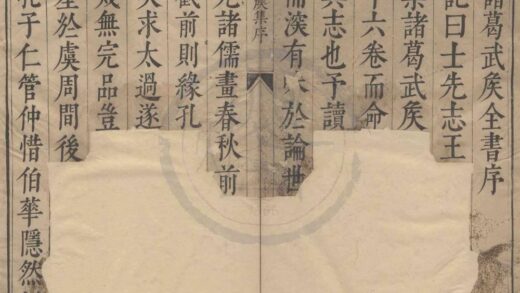 諸葛武矦全書序
記曰士先志王
諸葛武矦
十六卷而命
其志也予讀
漢有於論世
矦集序
諸儒畫春秋前
前則緣孔
求太過遂
無完品豈
於虞周間後
孔子仁管仲惜伯華隱然